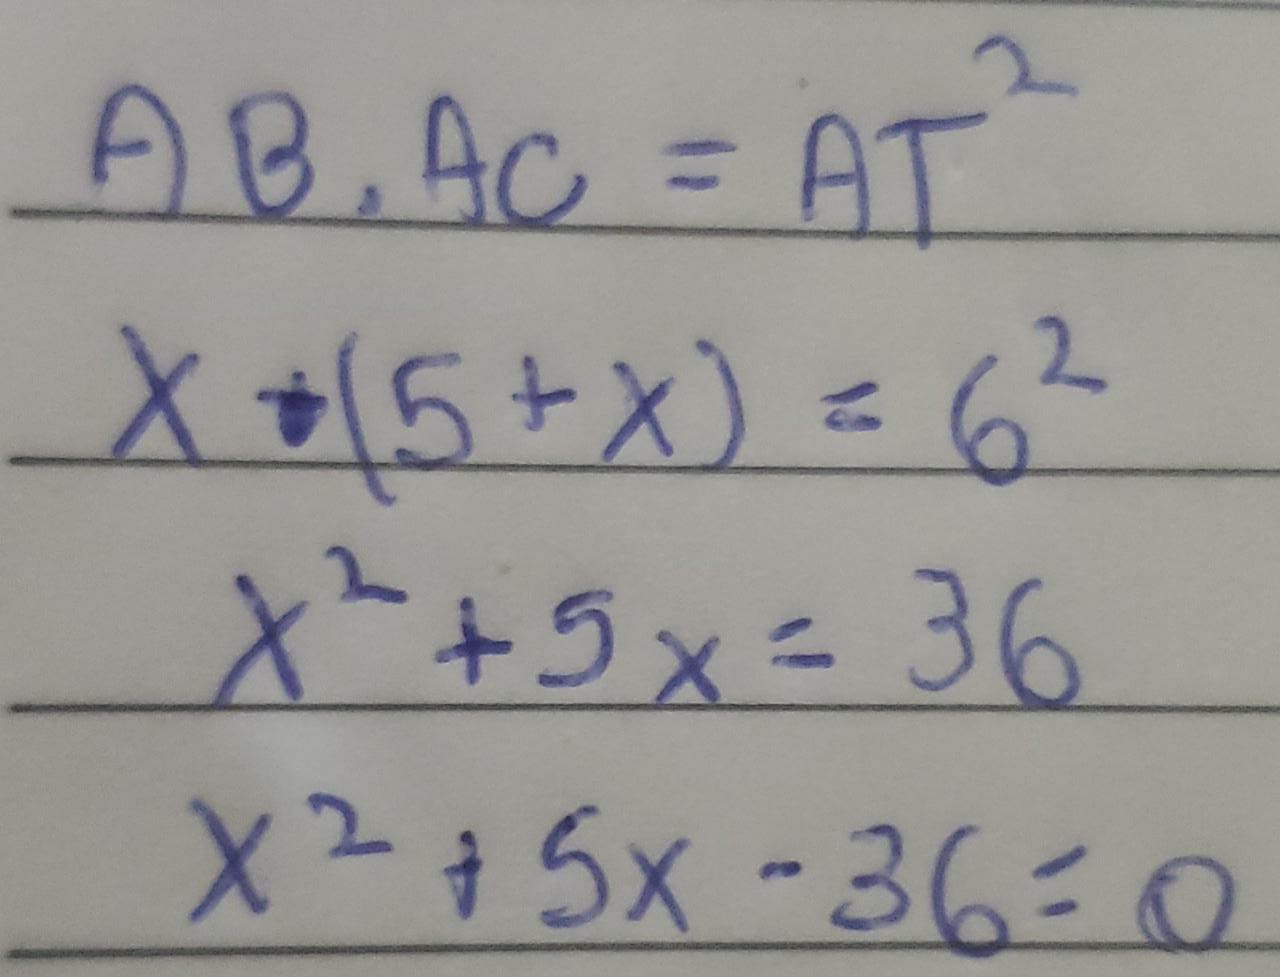 AB . AC = AT²
x · (5 + x) = 6²
x² + 5x = 36
x² + 5x - 36 = 0